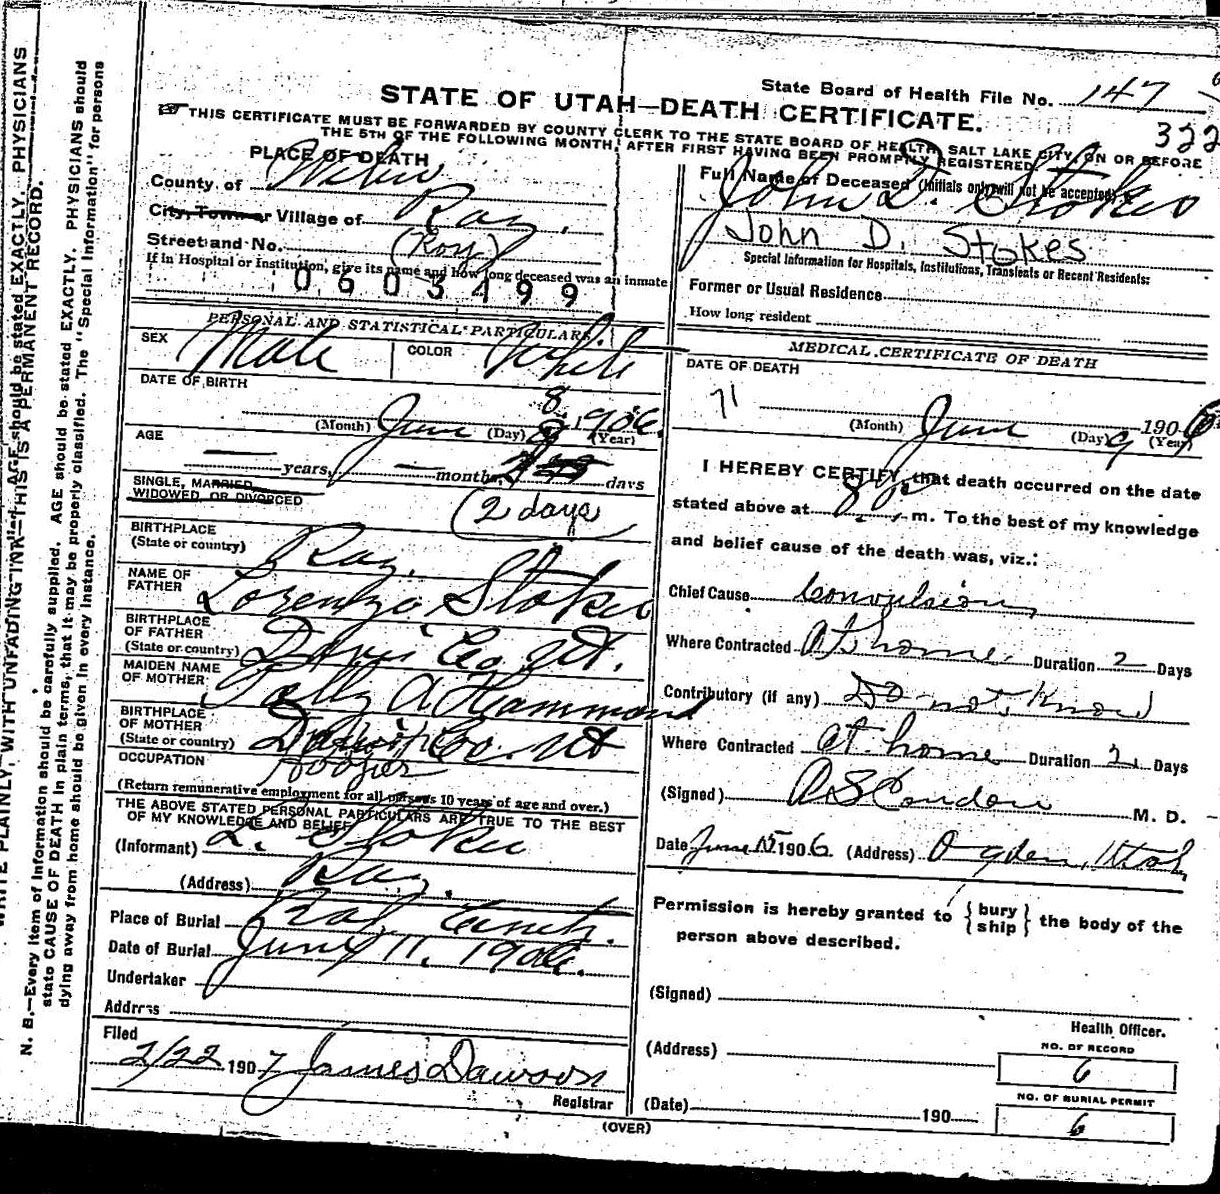 State Board of Health File No. 147
STATE OF UTAH—DEATH CERTIFICATE.
322
THIS CERTIFICATE MUST BE FORWARDED BY COUNTY CLERK TO THE STATE BOARD OF HEALTH, SALT LAKE CITY, ON OR BEFORE
THE 5TH OF THE FOLLOWING MONTH, AFTER FIRST HAVING BEEN PROMPTLY REGISTERED
PLACE OF DEATH
County of Weber
City, Town or Village of Ray.
(Roy)
Street and No.
If in Hospital or Institution, give its name and how long deceased was an inmate
0603499
PERSONAL AND STATISTICAL PARTICULARS.
SEX Male COLOR White
DATE OF BIRTH
8
(Month) June (Day) 8 1906. (Year)
AGE
years, months, days
SINGLE, MARRIED,
WIDOWED, OR DIVORCED
(2 days)
BIRTHPLACE
(State or country) Ray.
NAME OF
FATHER Lorenzo Stoker
BIRTHPLACE
OF FATHER
(State or country) Davis Co. Ut.
MAIDEN NAME
OF MOTHER A Hammond
BIRTHPLACE
OF MOTHER
(State or country) Davis Co. Ut
Hooper
OCCUPATION
(Return remunerative employment for all persons 10 years of age and over.)
THE ABOVE STATED PERSONAL PARTICULARS ARE TRUE TO THE BEST
OF MY KNOWLEDGE AND BELIEF
(Informant) L. Stoker
(Address) Ray.
Place of Burial
Date of Burial June 11. 1906.
Undertaker
Address
Filed
2/22 1907 James Dawson
Registrar
Full Name of Deceased (Initials only will not be accepted)
John D. Stoker
John D. Stokes
Special Information for Hospitals, Institutions, Transients or Recent Residents:
Former or Usual Residence
How long resident
MEDICAL CERTIFICATE OF DEATH
DATE OF DEATH
71
(Month) June (Day) 9 1906 (Year)
I HEREBY CERTIFY, that death occurred on the date
stated above at 8 P. m. To the best of my knowledge
and belief cause of the death was, viz.:
Chief Cause Convulsions
Where Contracted At home. Duration 2 Days
Contributory (if any) Do not Know
Where Contracted at home Duration 2. Days
(Signed) A S Condon M. D.
Date June 1906. (Address) Ogden, Utah
Permission is hereby granted to { bury ship } the body of the
person above described.
(Signed)
Health Officer.
(Address)
NO. OF RECORD
6
NO. OF BURIAL PERMIT
6
(Date) 190
(OVER)
WRITE PLAINLY, WITH UNFADING INK—THIS IS A PERMANENT RECORD.
N. B.—Every item of Information should be carefully supplied. AGE should be stated EXACTLY. PHYSICIANS should
state CAUSE OF DEATH in plain terms, that it may be properly classified. The "Special Information" for persons
dying away from home should be given in every instance.